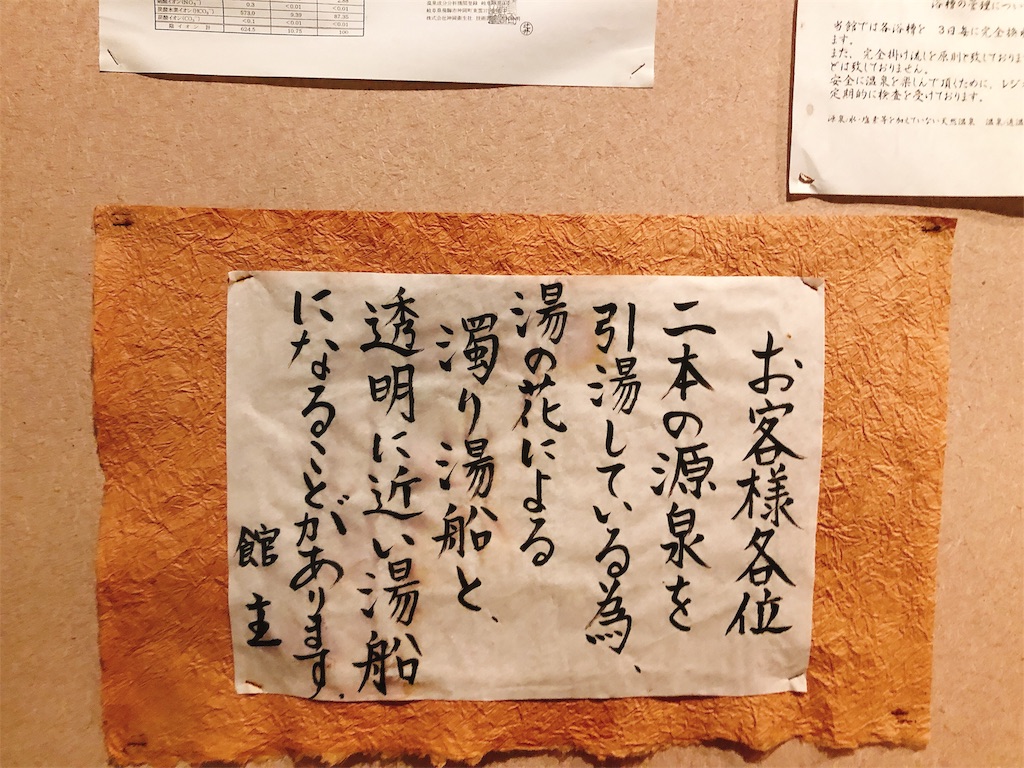 炭酸水素イオン(HCO₃⁻) 573.9 9.39 87.35
炭酸イオン(CO₃²⁻) <0.1 <0.01 <0.01
陰イオン計 624.5 10.75 100
浴槽の管理につい
当館では各浴槽を 3日毎に完全換
ます。
また、完全掛け流しを原則と致しておりま
とは致しておりません。
安全に温泉を楽しんで頂くために、レジ
定期的に検査を受けております。
源泉に水・塩素等を加していない天然温泉
お客様各位
二本の源泉を
引湯している為、
湯の花による
濁り湯船と、
透明に近い湯船
になることがあります。
館主